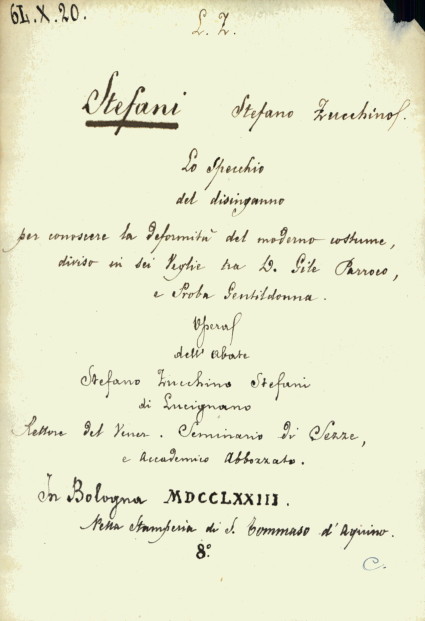 6L.X.20.
L. Z.
Stefani Stefano Zucchino.
Lo Specchio
del disinganno
per conoscere la deformità del moderno costume,
diviso in sei Veglie tra D. Gile Parroco,
e Proba Gentildonna.
Opera
dell' Abate
Stefano Zucchino Stefani
di Lucignano
Rettore del Vener. Seminario di Sezze,
e Accademico Abbozzato.
In Bologna MDCCLXXIII.
Nella Stamperia di S. Tommaso d'Aquino.
8.°
C.